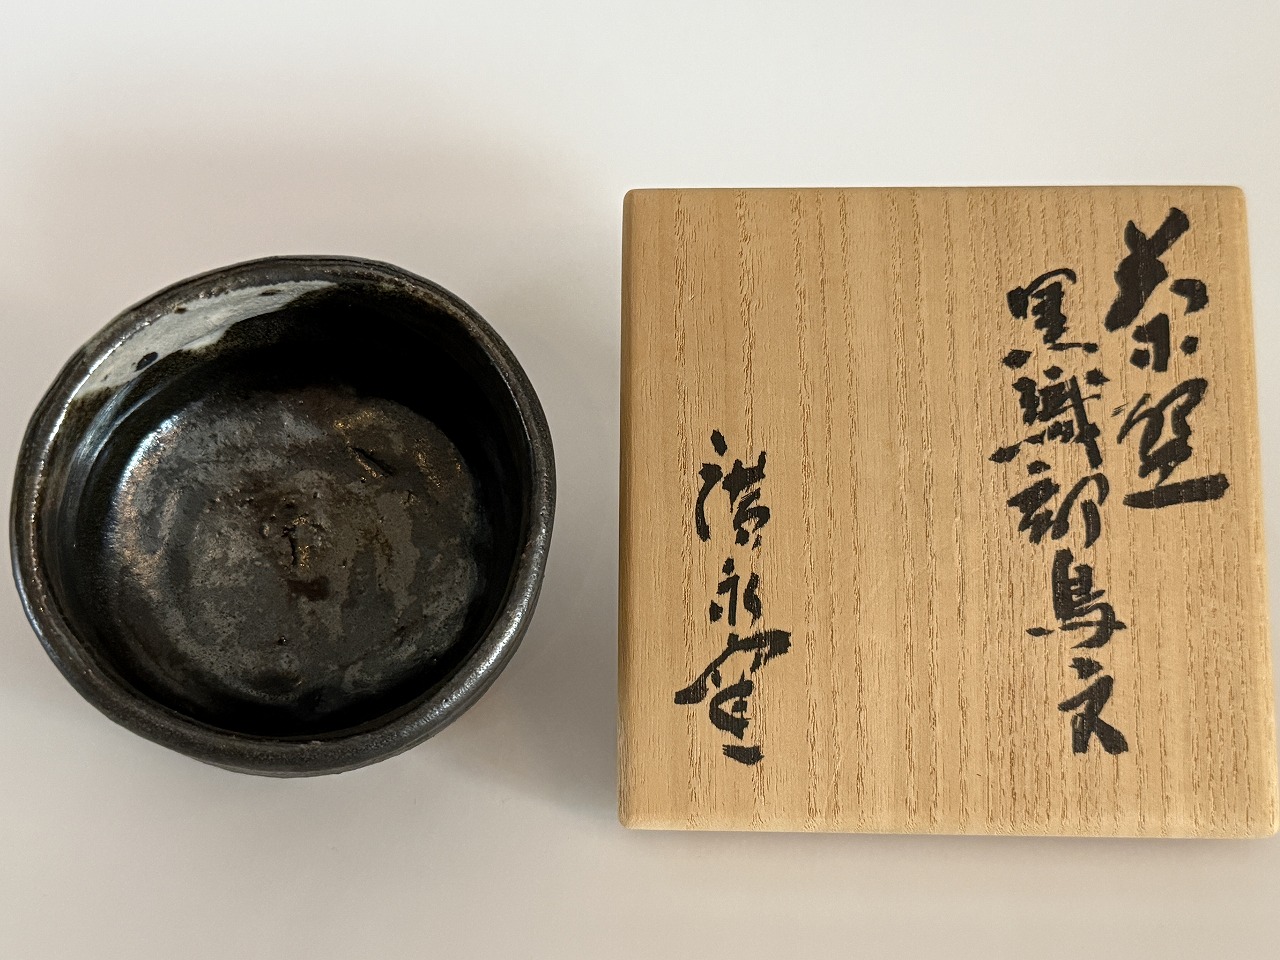 茶盌
黒織部鳥文
清水窯